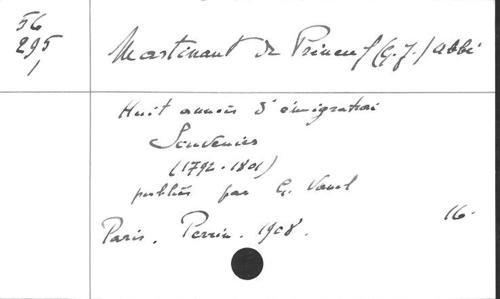 56
295
1
Martinant de Préneuf (G. J.) abbé
Huit années d'émigration
Souvenirs
(1792-1801)
publiés par G. Vanel
Paris. Perrin. 1908.
16.